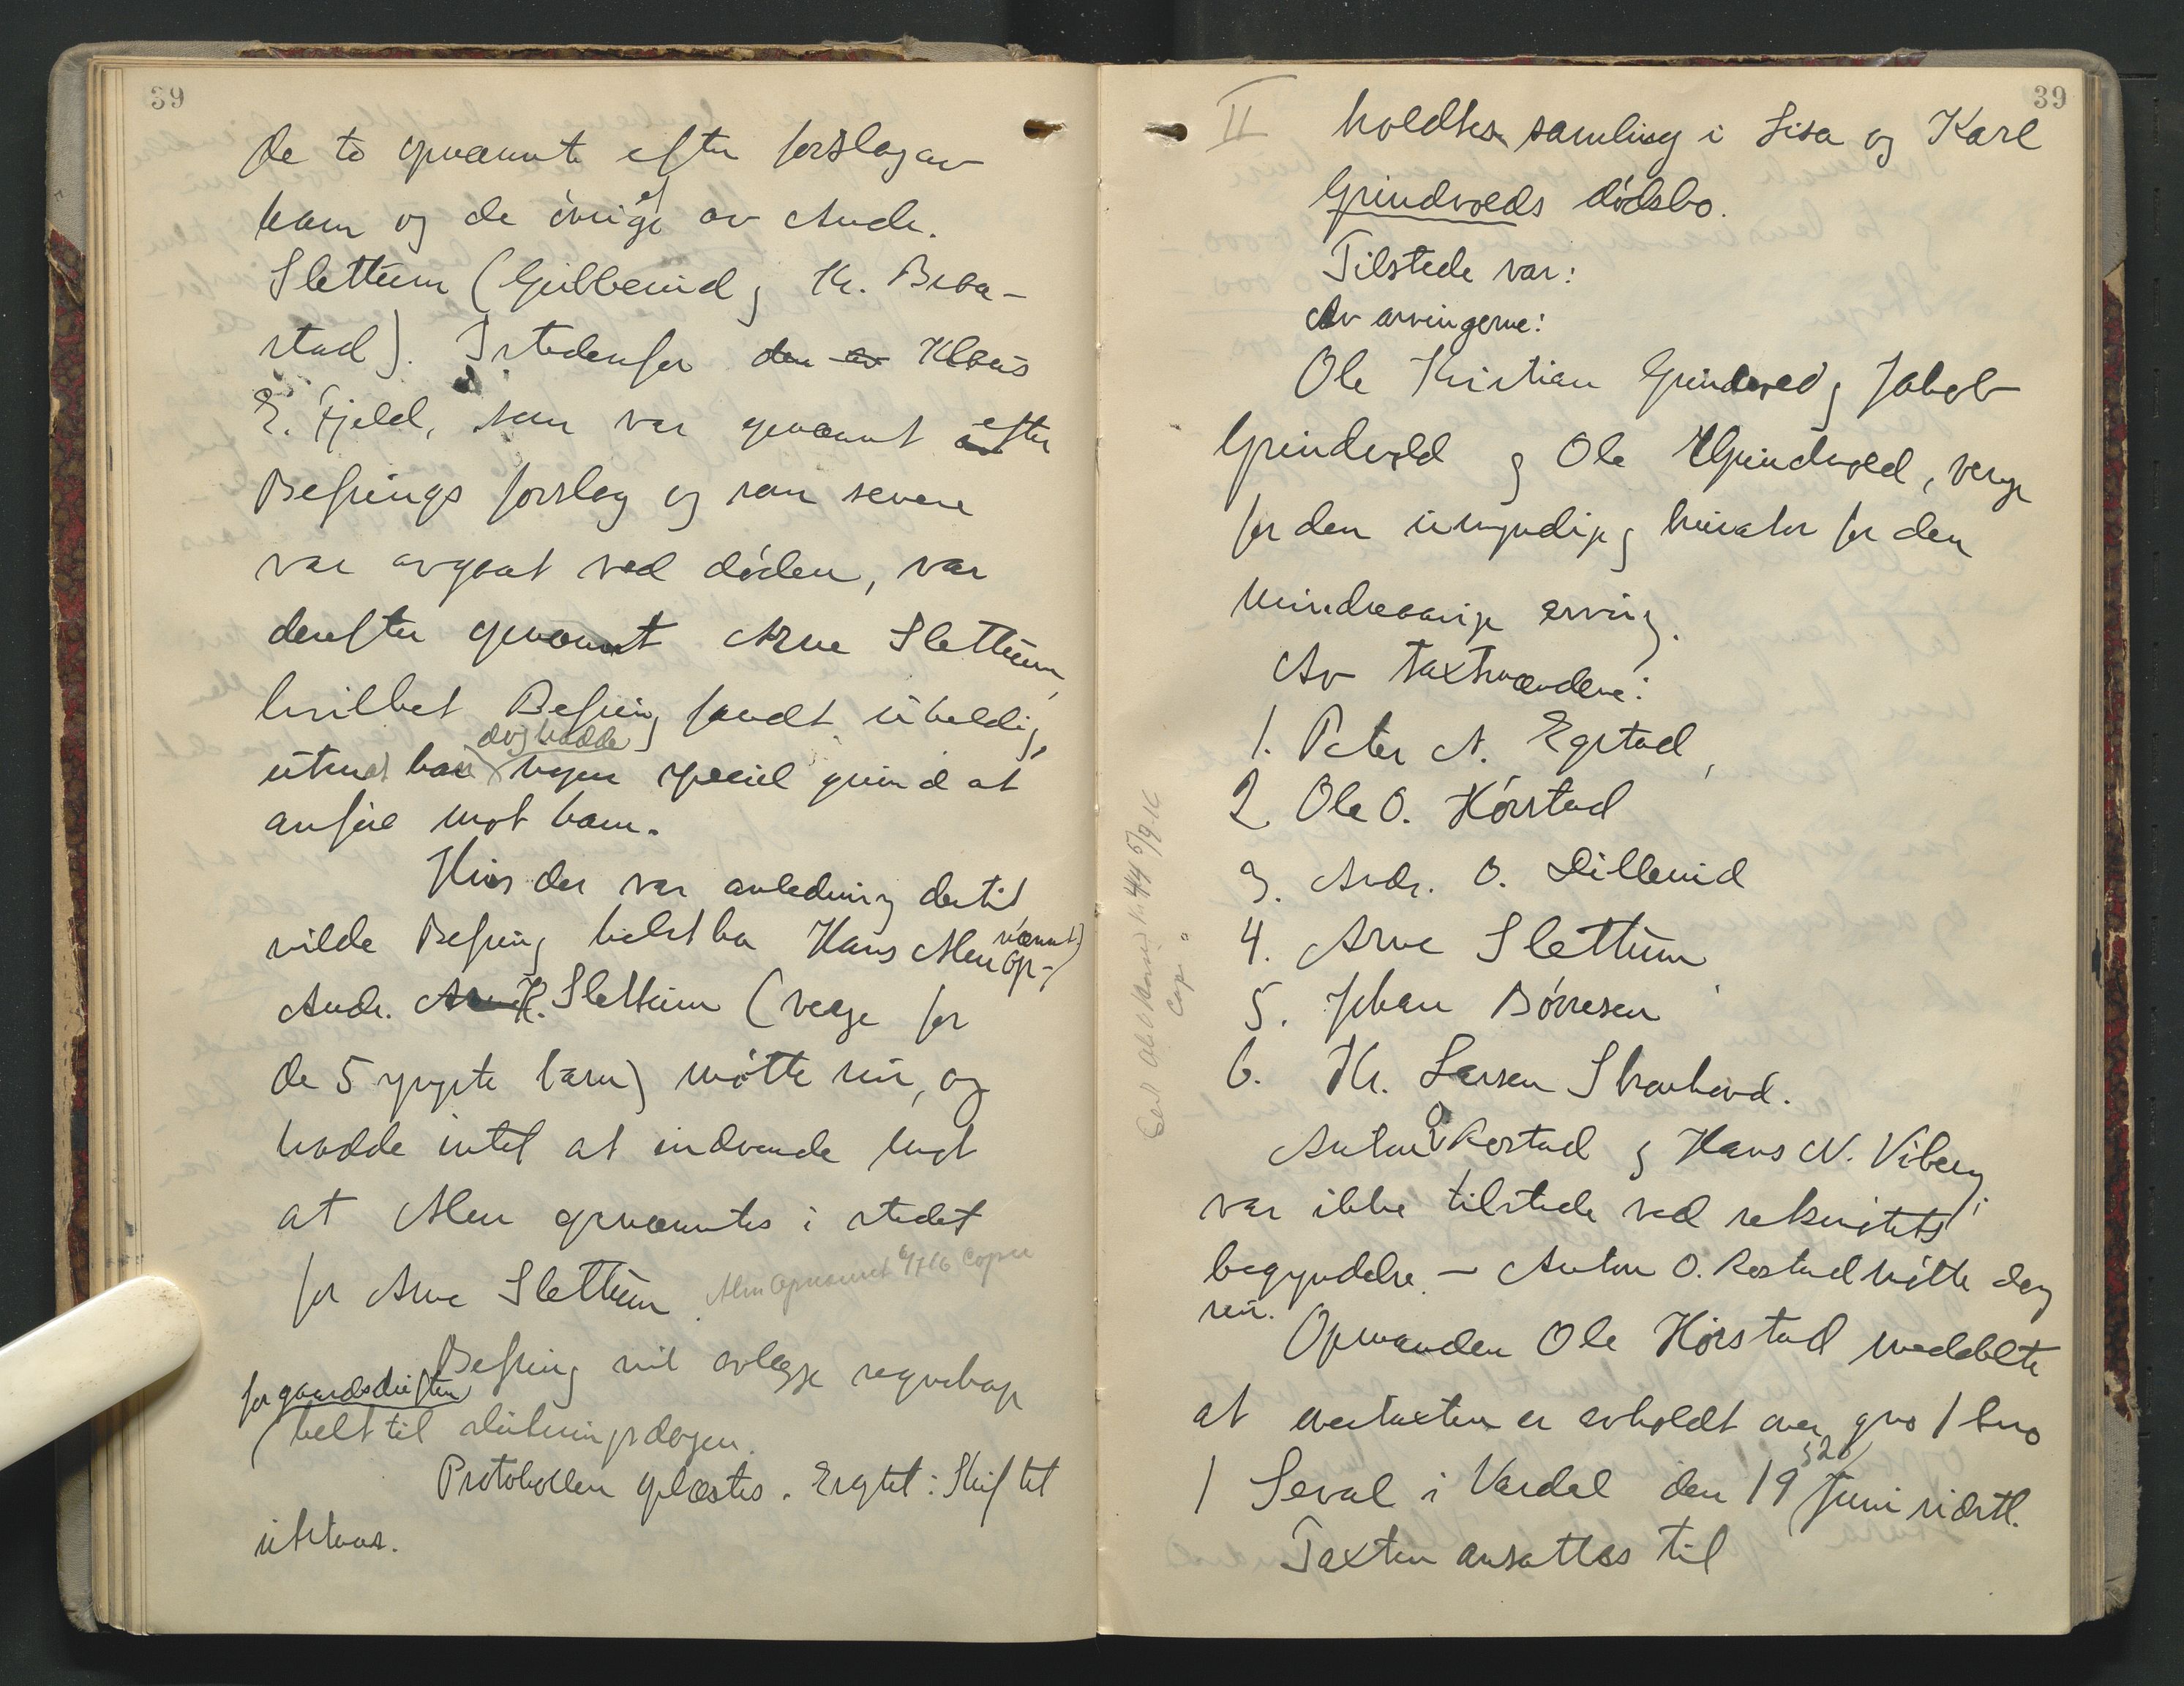 39
de to opnævnte efter forslag av
ham og de øvrige av Andr.
Slettum (Gulberud og Kr. Bra-
stad). Istedenfor den av Klaus
E. Fjeld, som var opnævnt efter
Befrings forslag og som senere
var avgaat ved døden, var
derefter opnævnt Arne Slettum,
hvilket Befring fandt uheldig,
uten at han dog hadde nogen speciel grund at
anføre mot ham.
Hvis der var anledning dertil
vilde Befring helst ha Hans Alm op-
nævnt)
Andr. H. Slettum (verge for
de 5 yngste barn) møtte nu, og
hadde intet at indvende mot
at Alm opnævntes i stedet
for Arne Slettum. Alm opnævnet
Befring vil avlegge regnskap
for gaardsdriften
helt til slutningsdagen.
Protokollen oplæstes. Erqtet: Skiftet
utstaar.
39
II holdtes samling i Lisa og Karl
Grindvolds dødsbo.
Tilstede var:
Av arvingerne:
Ole Kristian Grindvold og Jakob
Grindvold og Ole Grindvold, verge
for den umyndige og kurator for den
mindreaarige arving.
Av taxtmændene:
1. Peter N. Egstad,
2. Ole O. Hørstad
3. Andr. O. Dillerud
4. Arne Slettum
5. Johan Børresen
6. Kr. Larsen
Anton O. Rostad og Hans N. Viberg
var ikke tilstede ved
begyndelse – Anton O. Rostad møtte dog
nu.
Opmanden Ole Hørstad meddelte
at overtaxten er avholdt over gno 1 bno
1 Seval i Vardal den 19 520/ juni sidstl.
Taxten ansattes til